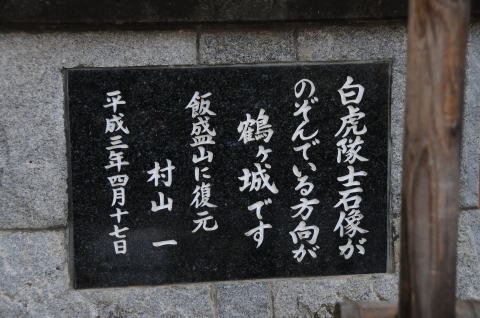 白虎隊士石像が
のぞんでいる方向が
鶴ヶ城です
飯盛山に復元
村山 一
平成三年四月十七日